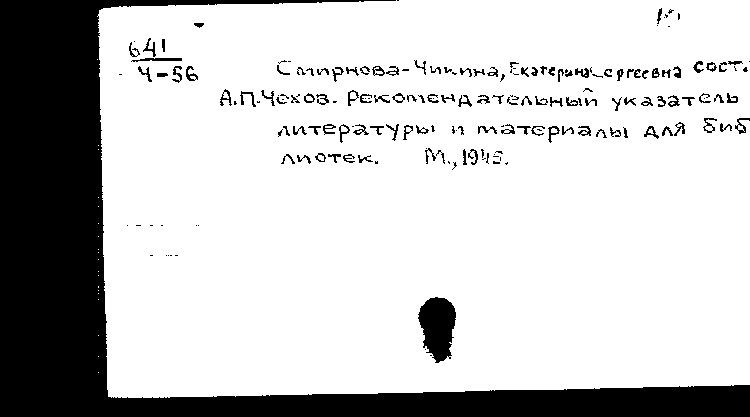 641
Ч-56
Смирнова-Чикина, Екатерина Сергеевна сост.
А.П.Чехов. Рекомендательный указатель
литературы и материалы для биб
лиотек. М., 1945.